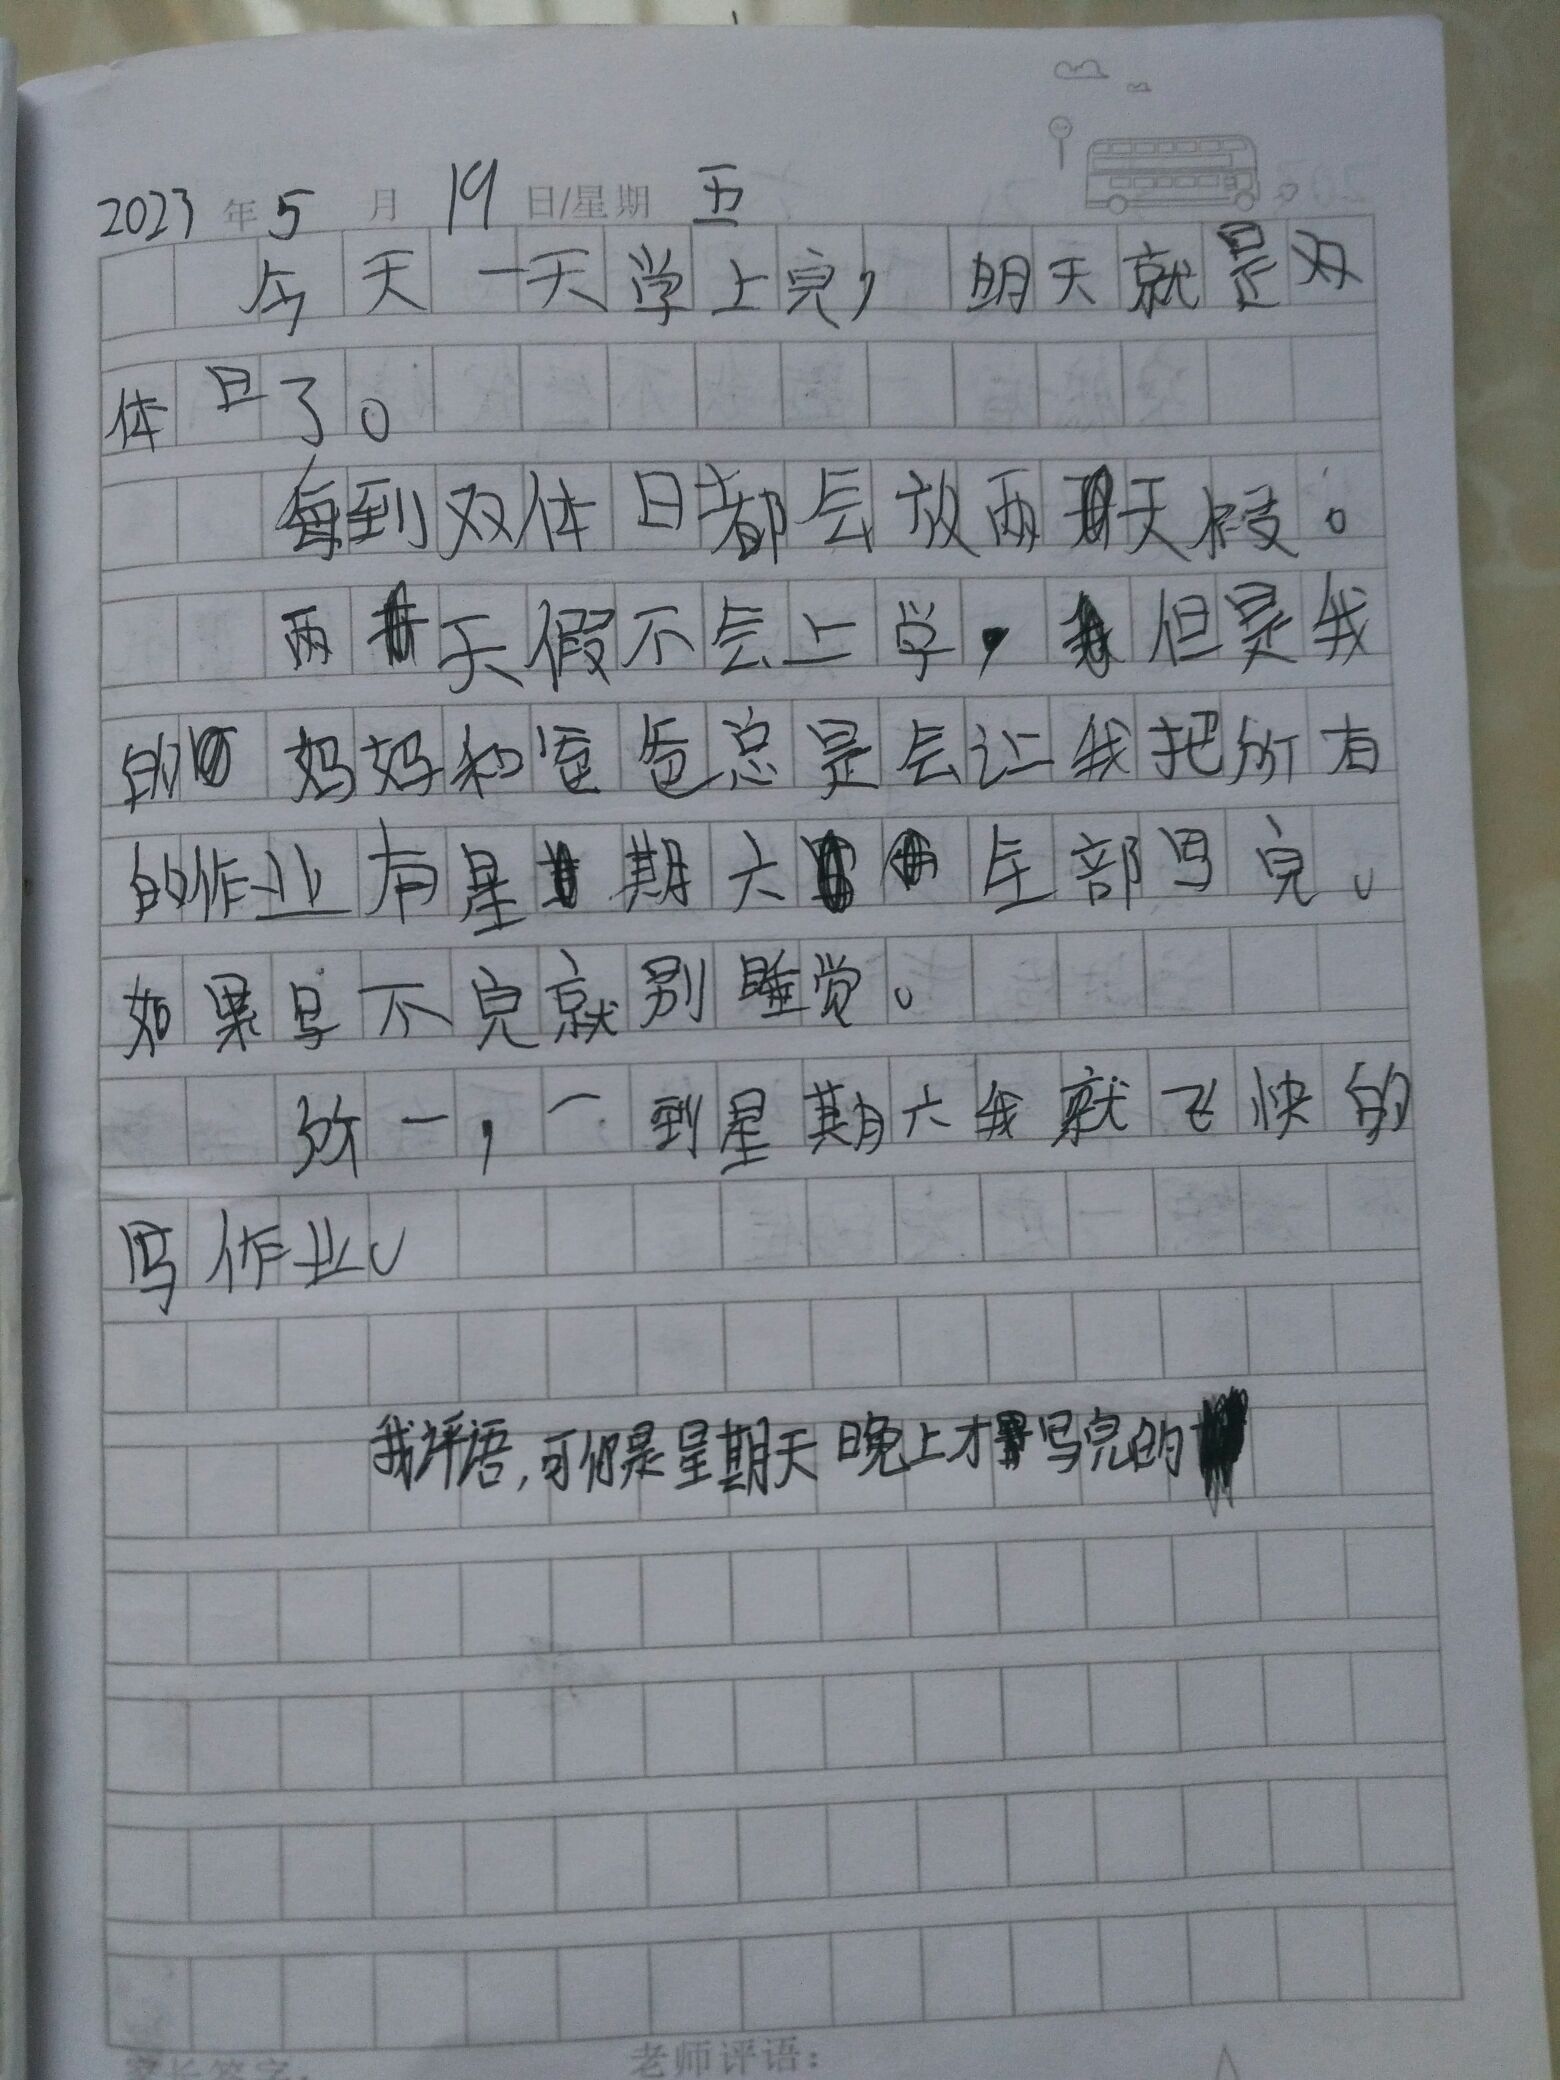 2023年5月19日/星期五
今天一天学上完，明天就是双
体日了。
每到双体日都会放两天假。
两天假不会上学，但是我
的妈妈和爸爸总是会让我把所有
的作业有星期六全部写完。
如果写不完就别睡觉。
一，一到星期六我就飞快的
写作业。
我评语，可你是星期天晚上才写完的
家长签字:
老师评语: